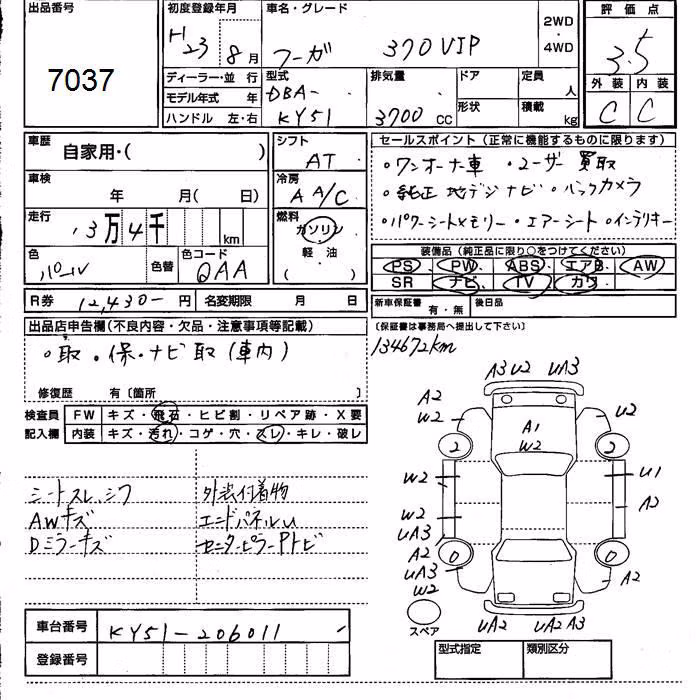 出品番号
7037
初度登録年月
H23 8月
車名・グレード
フーガ 370VIP
2WD・4WD
評価点
3.5
外装 内装
C C
ディーラー・並行
モデル年式 年
ハンドル 左・右
型式
DBA-
KY51
排気量
3700 cc
ドア
形状
定員 人
積載 kg
車歴
自家用・( )
車検
年 月( 日)
走行
13万4千 km
色
パール
色替
色コード
QAA
シフト
AT
冷房
A A/C
燃料
ガソリン
軽・油
( )
セールスポイント(正常に機能するものに限ります)
・ワンオーナー車 ・ユーザー買取
・純正地デジナビ・バックカメラ
・パワーシートメモリー・エアーシート・インテリキー
装備品(純正品に限り○をつけてください)
PS PW ABS エアB AW
SR ナビ TV カワ
R券 12,430- 円
名変期限 月 日
新車保証書 有・無
後日品
(保証書は事務局へ提出して下さい)
134672km
出品店申告欄(不良内容・欠品・注意事項等記載)
・取・保・ナビ取(車内)
修復歴 有〔箇所 〕
検査員記入欄
FW キズ・飛石・ヒビ割・リペア跡・X要
内装 キズ・汚れ・コゲ・穴・スレ・キレ・破レ
シートスレ、シワ
AWキズ
Dミラーキズ
外装付着物
エンドパネルU
センターピラーPトビ
A3 U2 UA3
A2
W2
U2
A1
W2
2 2
W2
U1
W2
A2
UA3
A2
UA3
W2
0 0
A2
スペア
UA2 UA2 A3
車台番号 KY51-206011
登録番号
型式指定 類別区分